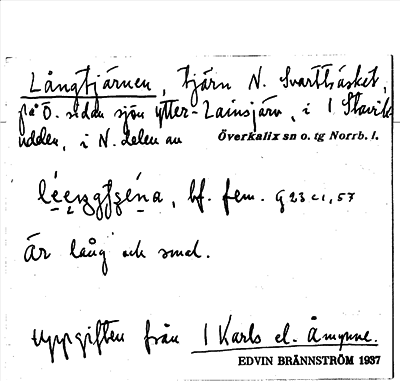 Långtjärnen, tjärn N. Svartträsket,
på Ö. sidan sjön ytter-Lainsjärv, i 1 Stavik
udden, i N. delen av Överkalix sn o. tg Norrb. l.
bf. fem. G 23 c 1, 57
Är lång och smal.
Uppgiften från 1 Karls el. Åmynne.
EDVIN BRÄNNSTRÖM 1937